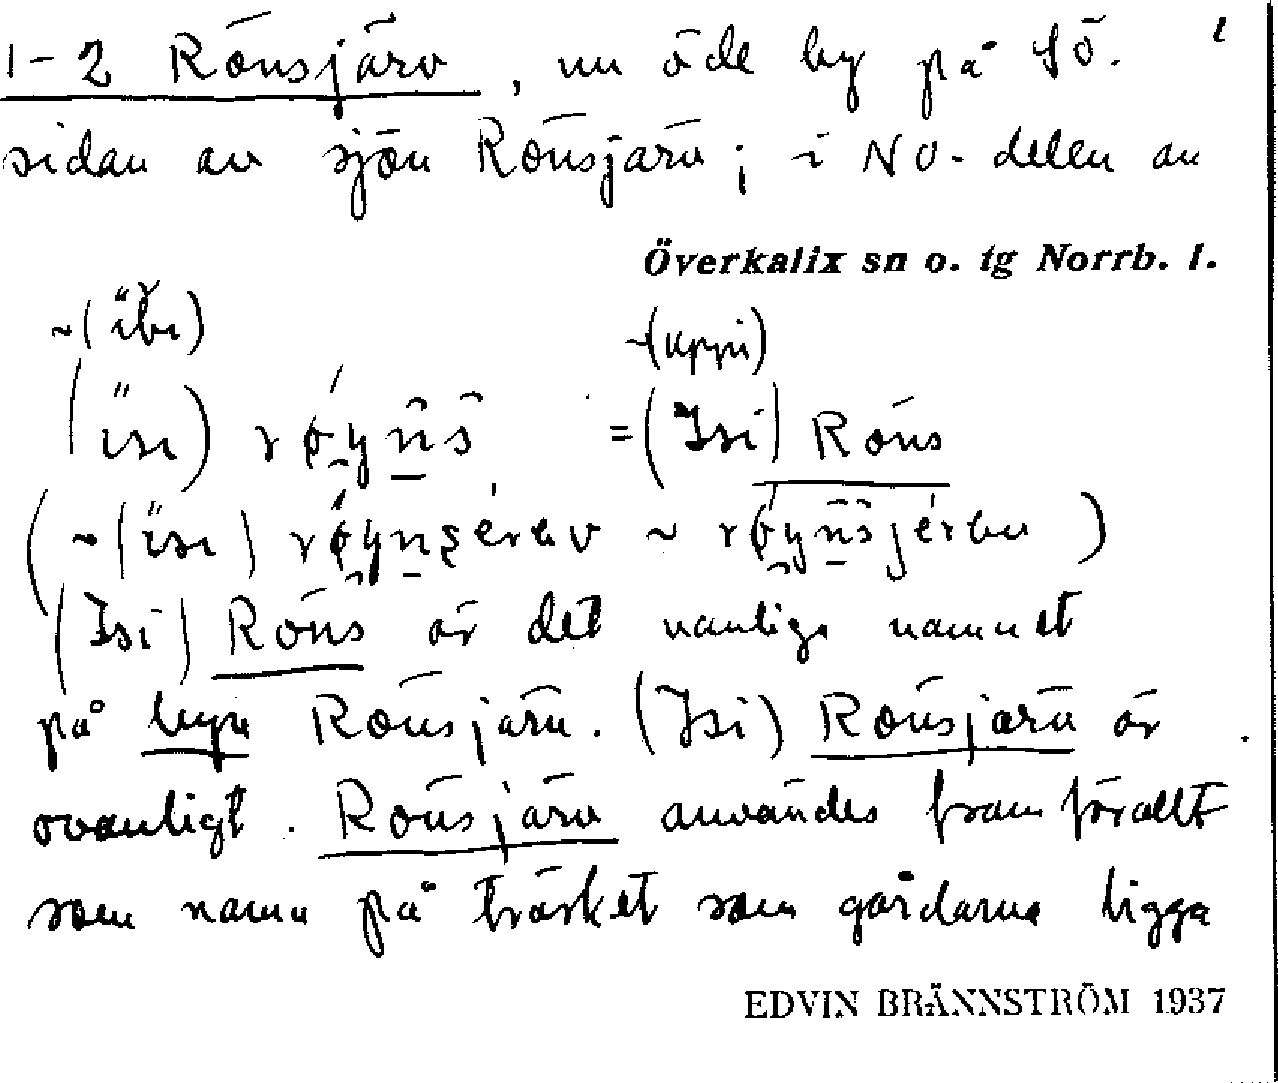 1-2 Rönsjärv, nu öde by på SÖ. 
sidan av sjön Rönsjärv; i NO-delen av
Överkalix sn o. tg Norrb. l.
~(uppi)
= (Isi) Röns
(Isi) Röns är det vanliga namnet
på byn Rönsjärv. (Isi) Rönsjärv är
ovanligt. Rönsjärv användes framförallt
som namn på träsket som gårdarna ligga
EDVIN BRÄNNSTRÖM 1937